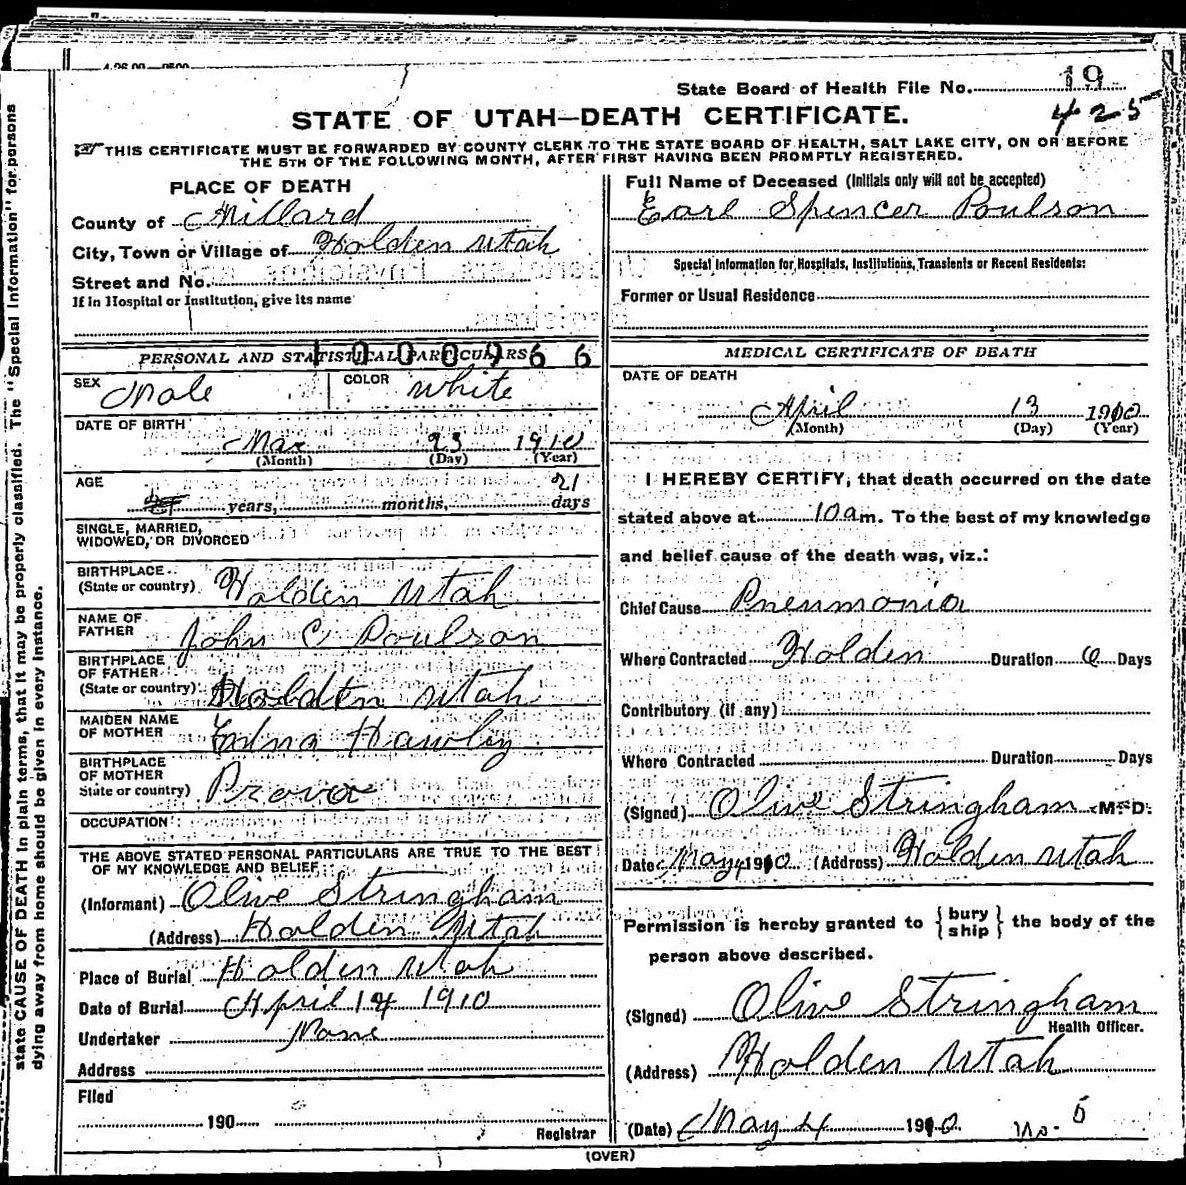 State Board of Health File No. 19
425
STATE OF UTAH—DEATH CERTIFICATE.
THIS CERTIFICATE MUST BE FORWARDED BY COUNTY CLERK TO THE STATE BOARD OF HEALTH, SALT LAKE CITY, ON OR BEFORE
THE 5TH OF THE FOLLOWING MONTH, AFTER FIRST HAVING BEEN PROMPTLY REGISTERED.
PLACE OF DEATH
County of Millard
City, Town or Village of Holden Utah
Street and No.
If in Hospital or Institution, give its name
PERSONAL AND STATISTICAL PARTICULARS
1000966
SEX Male COLOR White
DATE OF BIRTH
Mar 23 1910
(Month) (Day) (Year)
AGE 21
years, months, days
SINGLE, MARRIED,
WIDOWED, OR DIVORCED
BIRTHPLACE
(State or country) Holden Utah
NAME OF
FATHER John C Poulson
BIRTHPLACE
OF FATHER
(State or country) Holden Utah
MAIDEN NAME
OF MOTHER Edna Hawley
BIRTHPLACE
OF MOTHER
State or country) Provo
OCCUPATION
THE ABOVE STATED PERSONAL PARTICULARS ARE TRUE TO THE BEST
OF MY KNOWLEDGE AND BELIEF
(Informant) Olive Stringham
(Address) Holden Utah
Place of Burial Holden Utah
Date of Burial April 14 1910
Undertaker None
Address
Filed
190
Registrar
Full Name of Deceased (Initials only will not be accepted)
Earl Spencer Poulson
Special Information for Hospitals, Institutions, Transients or Recent Residents:
Former or Usual Residence
MEDICAL CERTIFICATE OF DEATH
DATE OF DEATH
April 13 1910
(Month) (Day) (Year)
I HEREBY CERTIFY, that death occurred on the date
stated above at 10 am. To the best of my knowledge
and belief cause of the death was, viz.:
Chief Cause Pneumonia
Where Contracted Holden Duration Days
Contributory (if any)
Where Contracted Duration Days
(Signed) Olive Stringham M.D.
Date May 4 1910 (Address) Holden Utah
Permission is hereby granted to { bury ship } the body of the
person above described.
(Signed) Olive Stringham
Health Officer.
(Address) Holden Utah
(Date) May 4 1910. No. 5
(OVER)
state CAUSE OF DEATH in plain terms, that it may be properly classified. The "Special Information" for persons
dying away from home should be given in every instance.